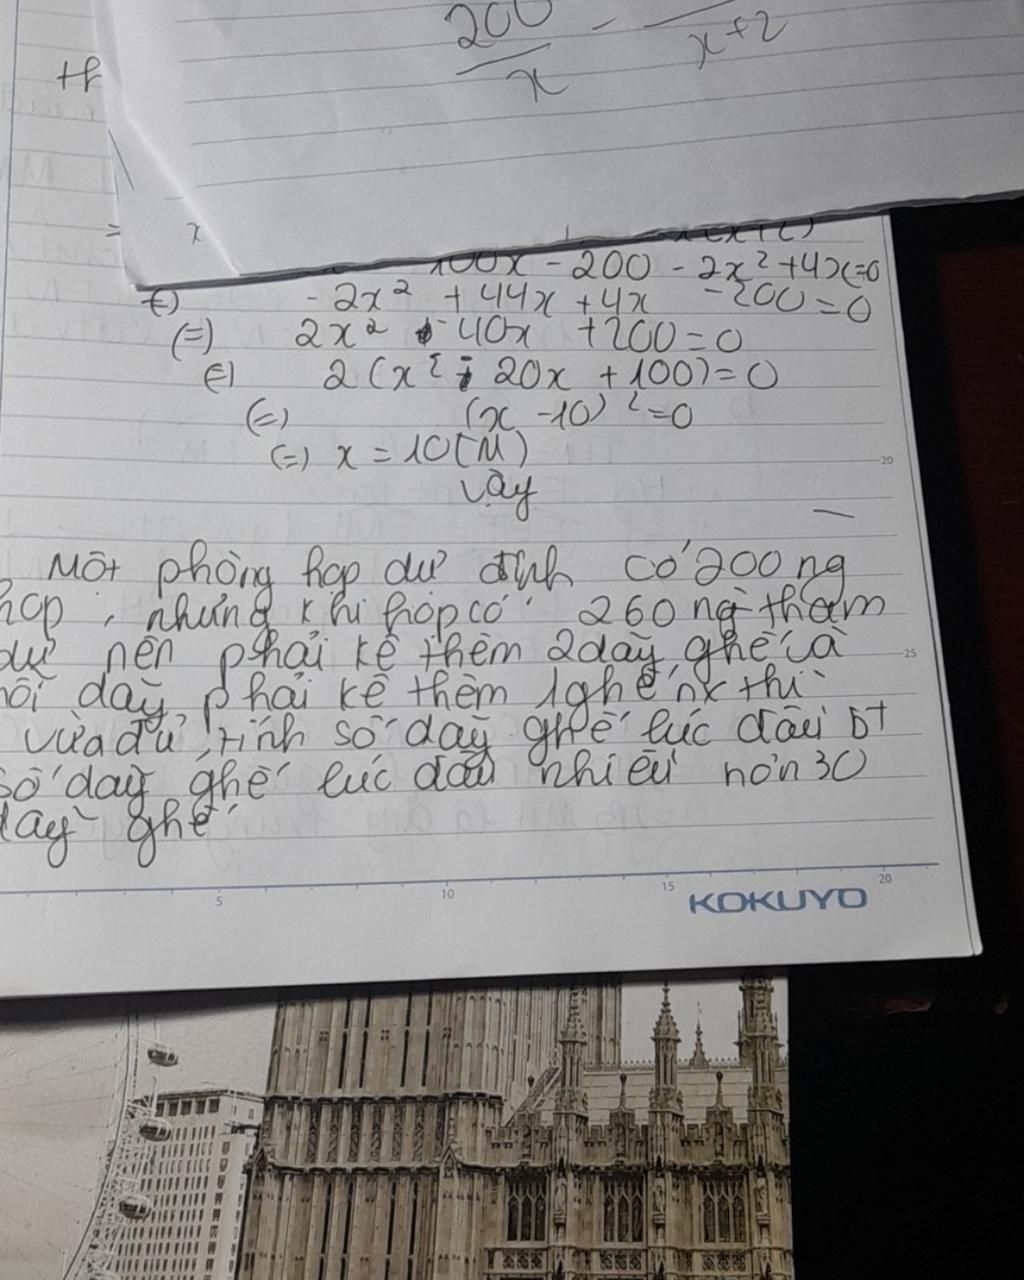 200 -
x x+2
th
= x
100x - 200 - 2x² + 4x = 0
- 2x² + 44x + 4x - 200 = 0
(=) 2x² - 40x + 200 = 0
(=) 2(x² - 20x + 100) = 0
(=) (x - 10)² = 0
(=) x = 10(N)
Vậy
20
Một phòng họp dự định có 200 ng
họp, nhưng khi họp có 260 ng tham
dự nên phải kê thêm 2 dãy ghế và
25
mỗi dãy phải kê thêm 1 ghế nx thì
vừa đủ, tính số dãy ghế lúc đầu bt
số dãy ghế lúc đầu nhiều hơn 30
dãy ghế
5 10 15 20
KOKUYO